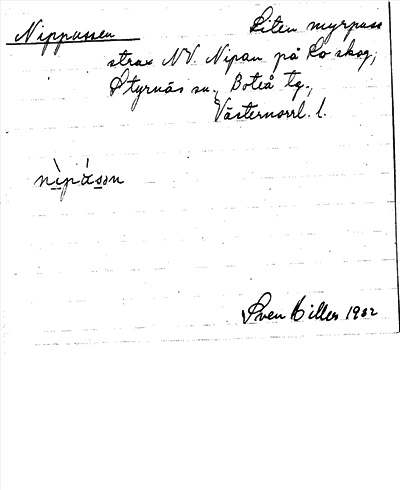 Nippussen Liten myrpuss
strax NV. Nipan på Lo skog,
Styrnäs sn., Boteå tg.,
Västernorrl. l.
nìpásən
Sven Hiller 1932